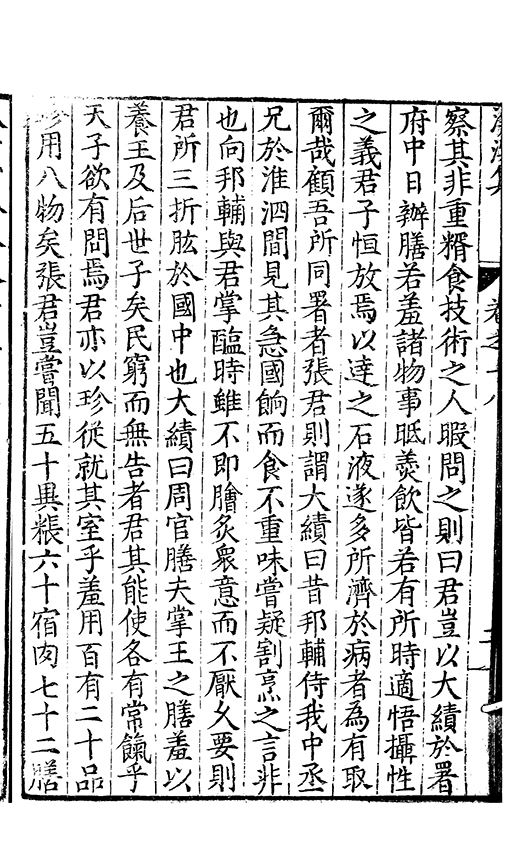 察其非重糈食技術之人暇問之則曰君豈以大績於署
府中日辦膳若羞諸物事眂羮飲皆若有所時適悟攝性
之義君子恒放焉以達之石液遂多所濟於病者為有取
爾哉顧吾所同署者張君則謂大績曰昔邦輔侍我中丞
兄於淮泗間見其急國餉而食不重味嘗疑割烹之言非
也向邦輔與君掌醢時雖不即膾炙衆意而不厭久要則
君所三折肱於國中也大績曰周官膳夫掌王之膳羞以
養王及后世子矣民窮而無告者君其能使各有常餼乎
天子欲有問焉君亦以珍從就其室乎羞用百有二十品
珍用八物矣張君豈嘗聞五十異粻六十宿肉七十二膳